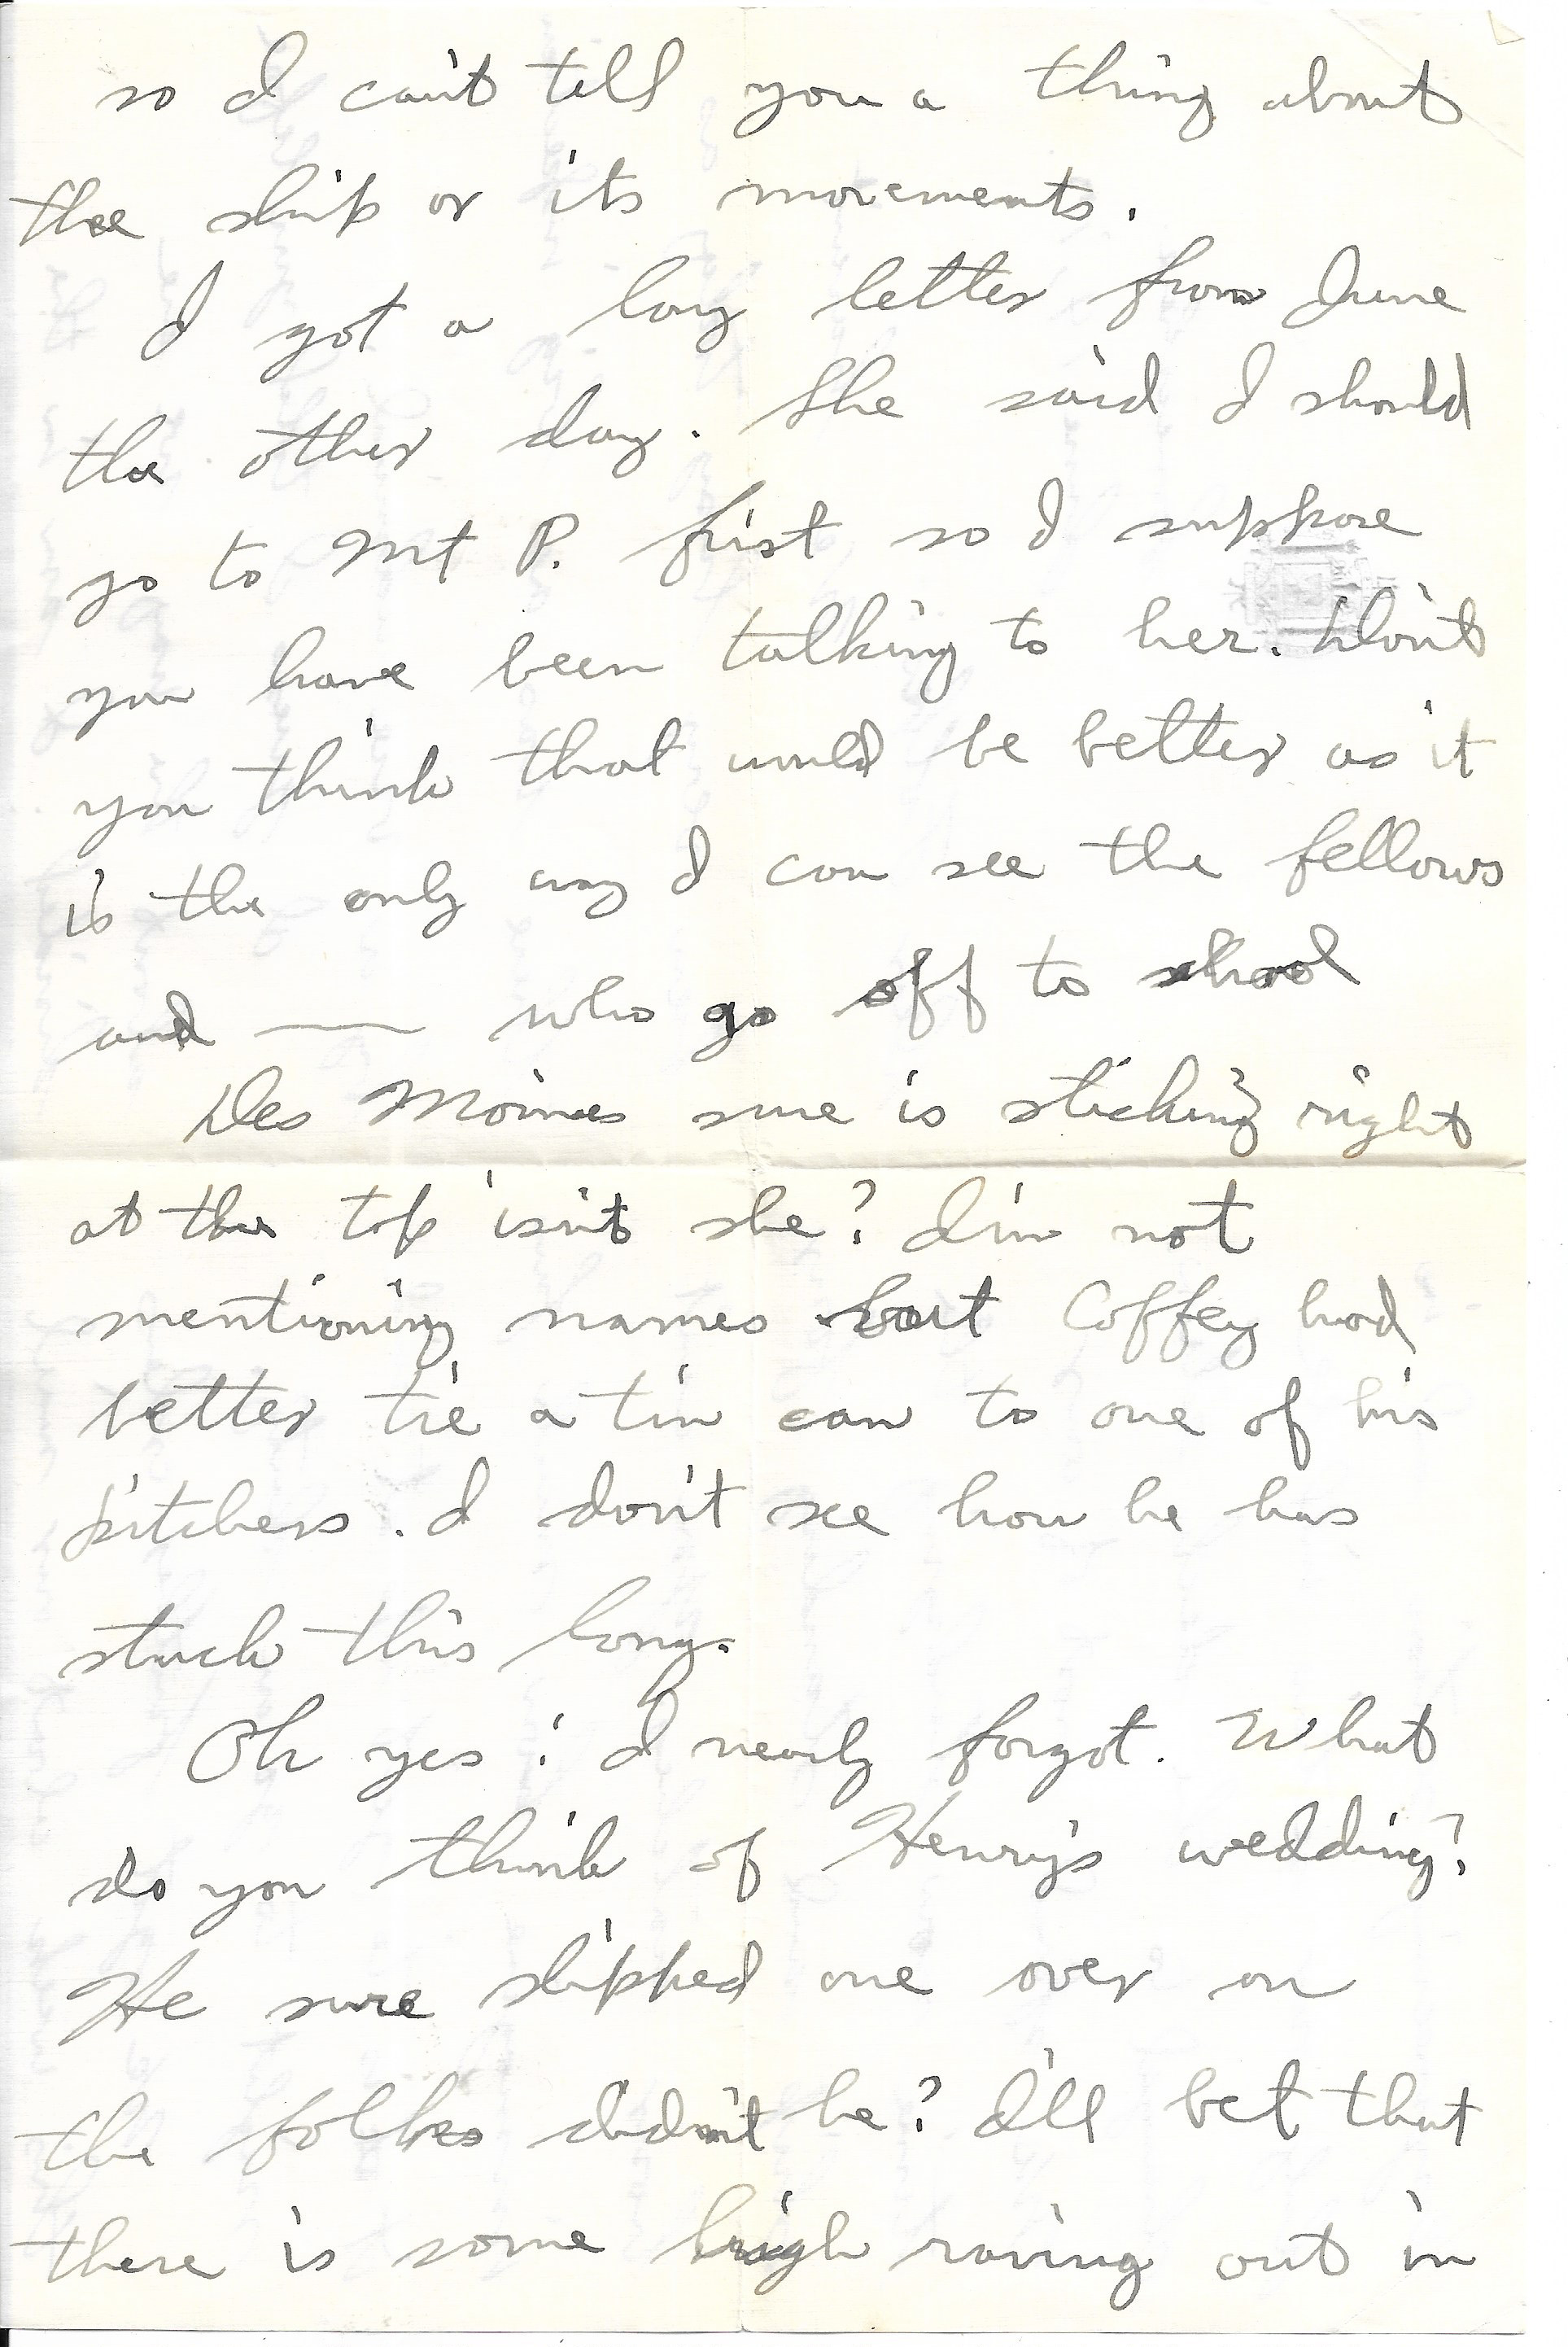 so I can't tell you a thing about
the ship or its movements.
I got a long letter from June
the other day. She said I should
go to Mt P. first so I suppose
you have been talking to her. Don't
you think that would be better as it
is the only way I can see the fellows
and —— who go off to school
Des Moines sure is sticking right
at the top isn't she? I'm not
mentioning names but Coffey had
better tie a tin can to one of his
pitchers. I don't see how he has
stuck this long.
Oh yes! I nearly forgot. What
do you think of Henry's wedding?
He sure slipped one over on
the folkes didn't he? I'll bet that
there is some high raving out in